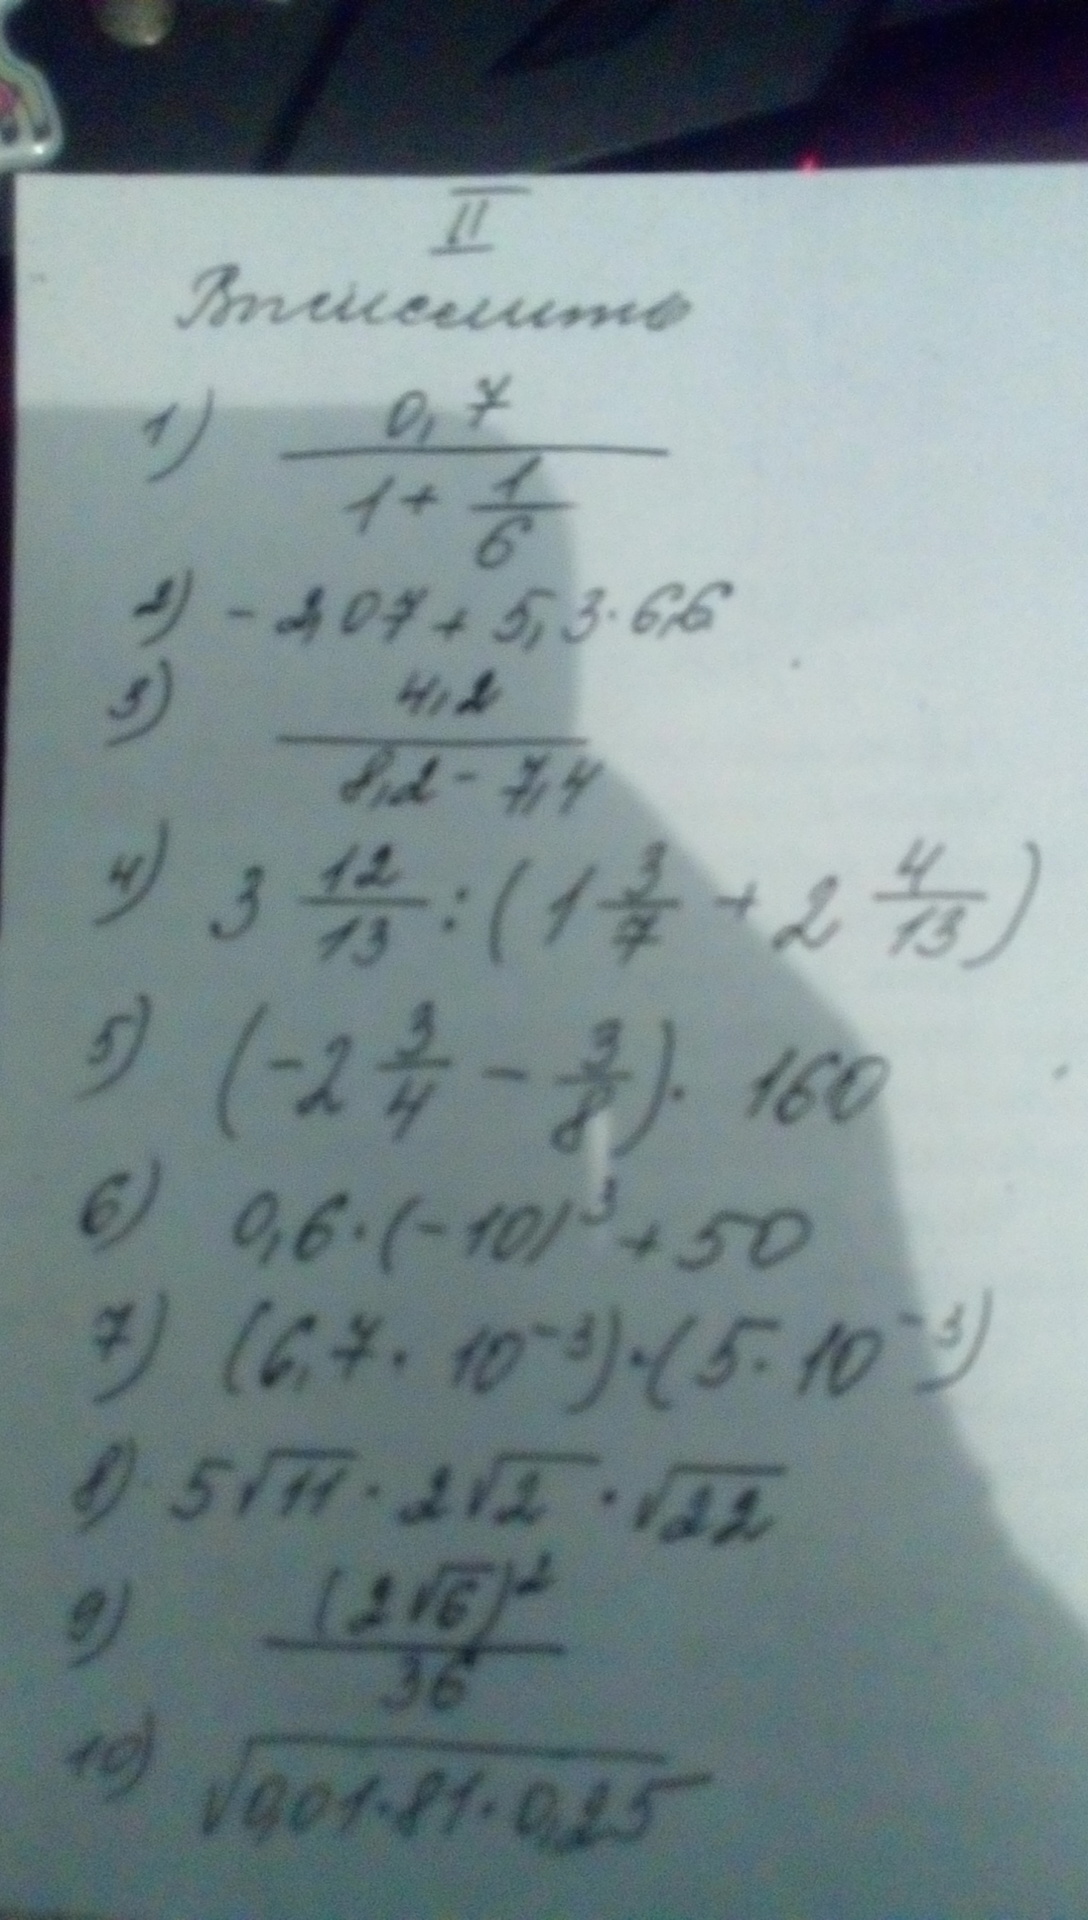 II
Вычислить
1) 0,7 / (1 + 1/6)
2) - 2,07 + 5,3 · 6,6
3) 4,2 / (8,2 - 7,4)
4) 3 12/13 : (1 3/7 + 2 4/13)
5) (-2 3/4 - 3/8) · 160
6) 0,6 · (-10)³ + 50
7) (6,7 · 10⁻³) · (5 · 10⁻³)
8) 5√11 · 2√2 · √22
9) (2√6)² / 36
10) √(0,01 · 81 · 0,25)